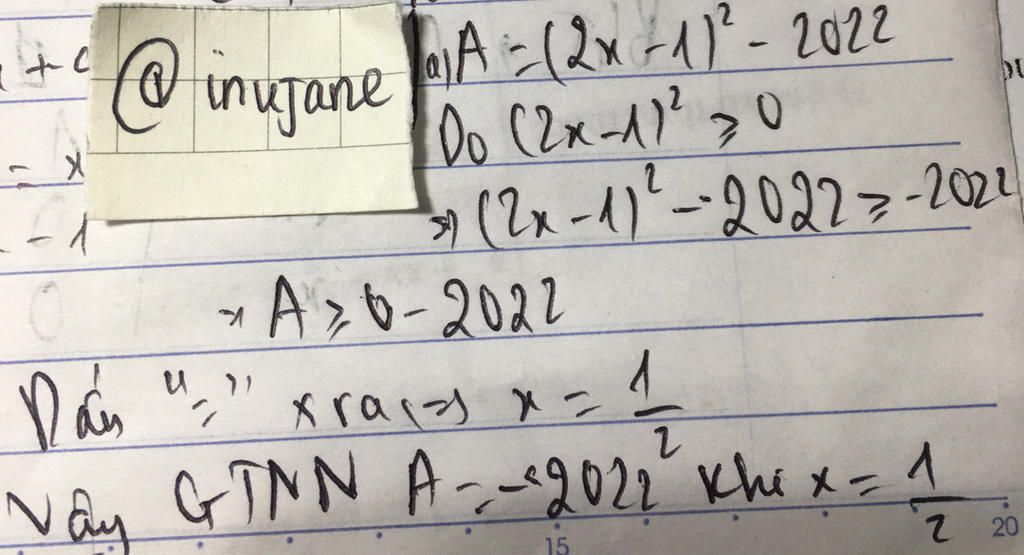 @ inujane
a) A = (2x - 1)² - 2022
Do (2x - 1)² ≥ 0
=> (2x - 1)² - 2022 ≥ -2022
=> A ≥ 0 - 2022
Dấu "=" xra <=> x = 1/2
Vậy GTNN A = -2022 khi x = 1/2
= x
- 1
15
20